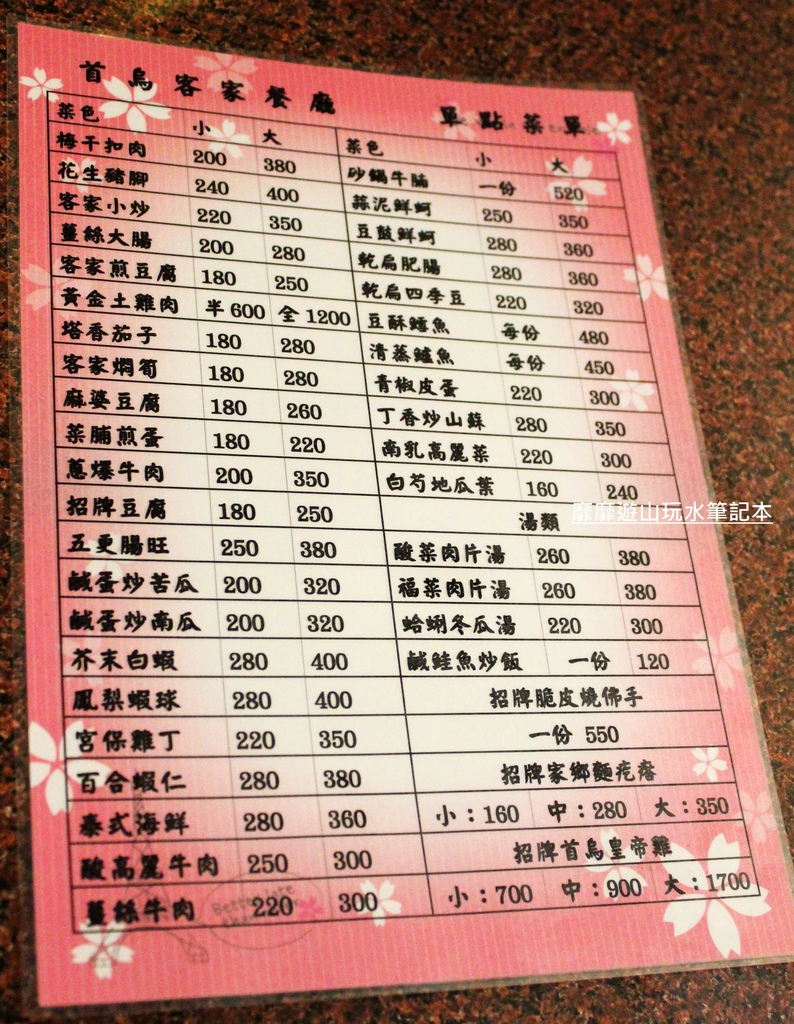 首烏客家餐廳 單點菜單
菜色 小 大
梅干扣肉 200 380
花生豬腳 240 400
客家小炒 220 350
薑絲大腸 200 280
客家煎豆腐 180 250
黃金土雞肉 半600 全1200
塔香茄子 180 280
客家燜筍 180 280
麻婆豆腐 180 260
菜脯煎蛋 180 220
蔥爆牛肉 200 350
招牌豆腐 180 250
五更腸旺 250 380
鹹蛋炒苦瓜 200 320
鹹蛋炒南瓜 200 320
芥末白蝦 280 400
鳳梨蝦球 280 400
宮保雞丁 220 350
百合蝦仁 280 380
泰式海鮮 280 360
酸高麗牛肉 250 300
薑絲牛肉 220 300
菜色 小 大
砂鍋牛腩 一份 520
蒜泥鮮蚵 250 350
豆鼓鮮蚵 280 360
乾扁肥腸 280 360
乾扁四季豆 220 320
豆酥鱈魚 每份 480
清蒸鱸魚 每份 450
青椒皮蛋 220 300
丁香炒山蘇 280 350
南乳高麗菜 220 300
白芍地瓜葉 160 240
湯類
酸菜肉片湯 260 380
福菜肉片湯 260 380
蛤蜊冬瓜湯 220 300
鹹鮭魚炒飯 一份 120
招牌脆皮燒佛手
一份 550
招牌家鄉麵疙瘩
小：160 中：280 大：350
招牌首烏皇帝雞
小：700 中：900 大：1700
靡靡遊山玩水筆記本